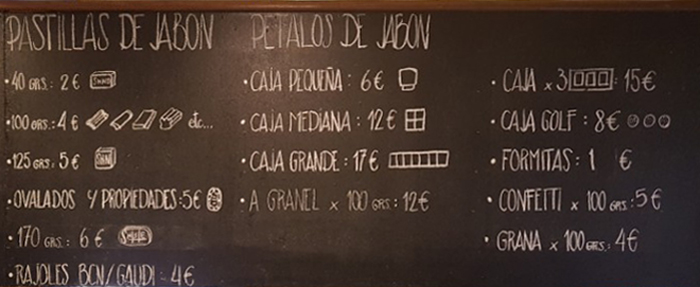 PASTILLAS DE JABON
· 40 GRS.: 2€
· 100 GRS.: 4€ etc...
· 125 GRS.: 5€
· OVALADOS Y PROPIEDADES: 5€
· 170 GRS.: 6€
· RAJOLES BCN/GAUDI: 4€
PETALOS DE JABON
· CAJA PEQUEÑA: 6€
· CAJA MEDIANA: 12€
· CAJA GRANDE: 17€
· A GRANEL x 100 GRS: 12€
· CAJA x 3: 15€
· CAJA GOLF: 8€
· FORMITAS: 1 €
· CONFETTI x 100 GRS.: 5€
· GRANA x 100 GRS.: 4€